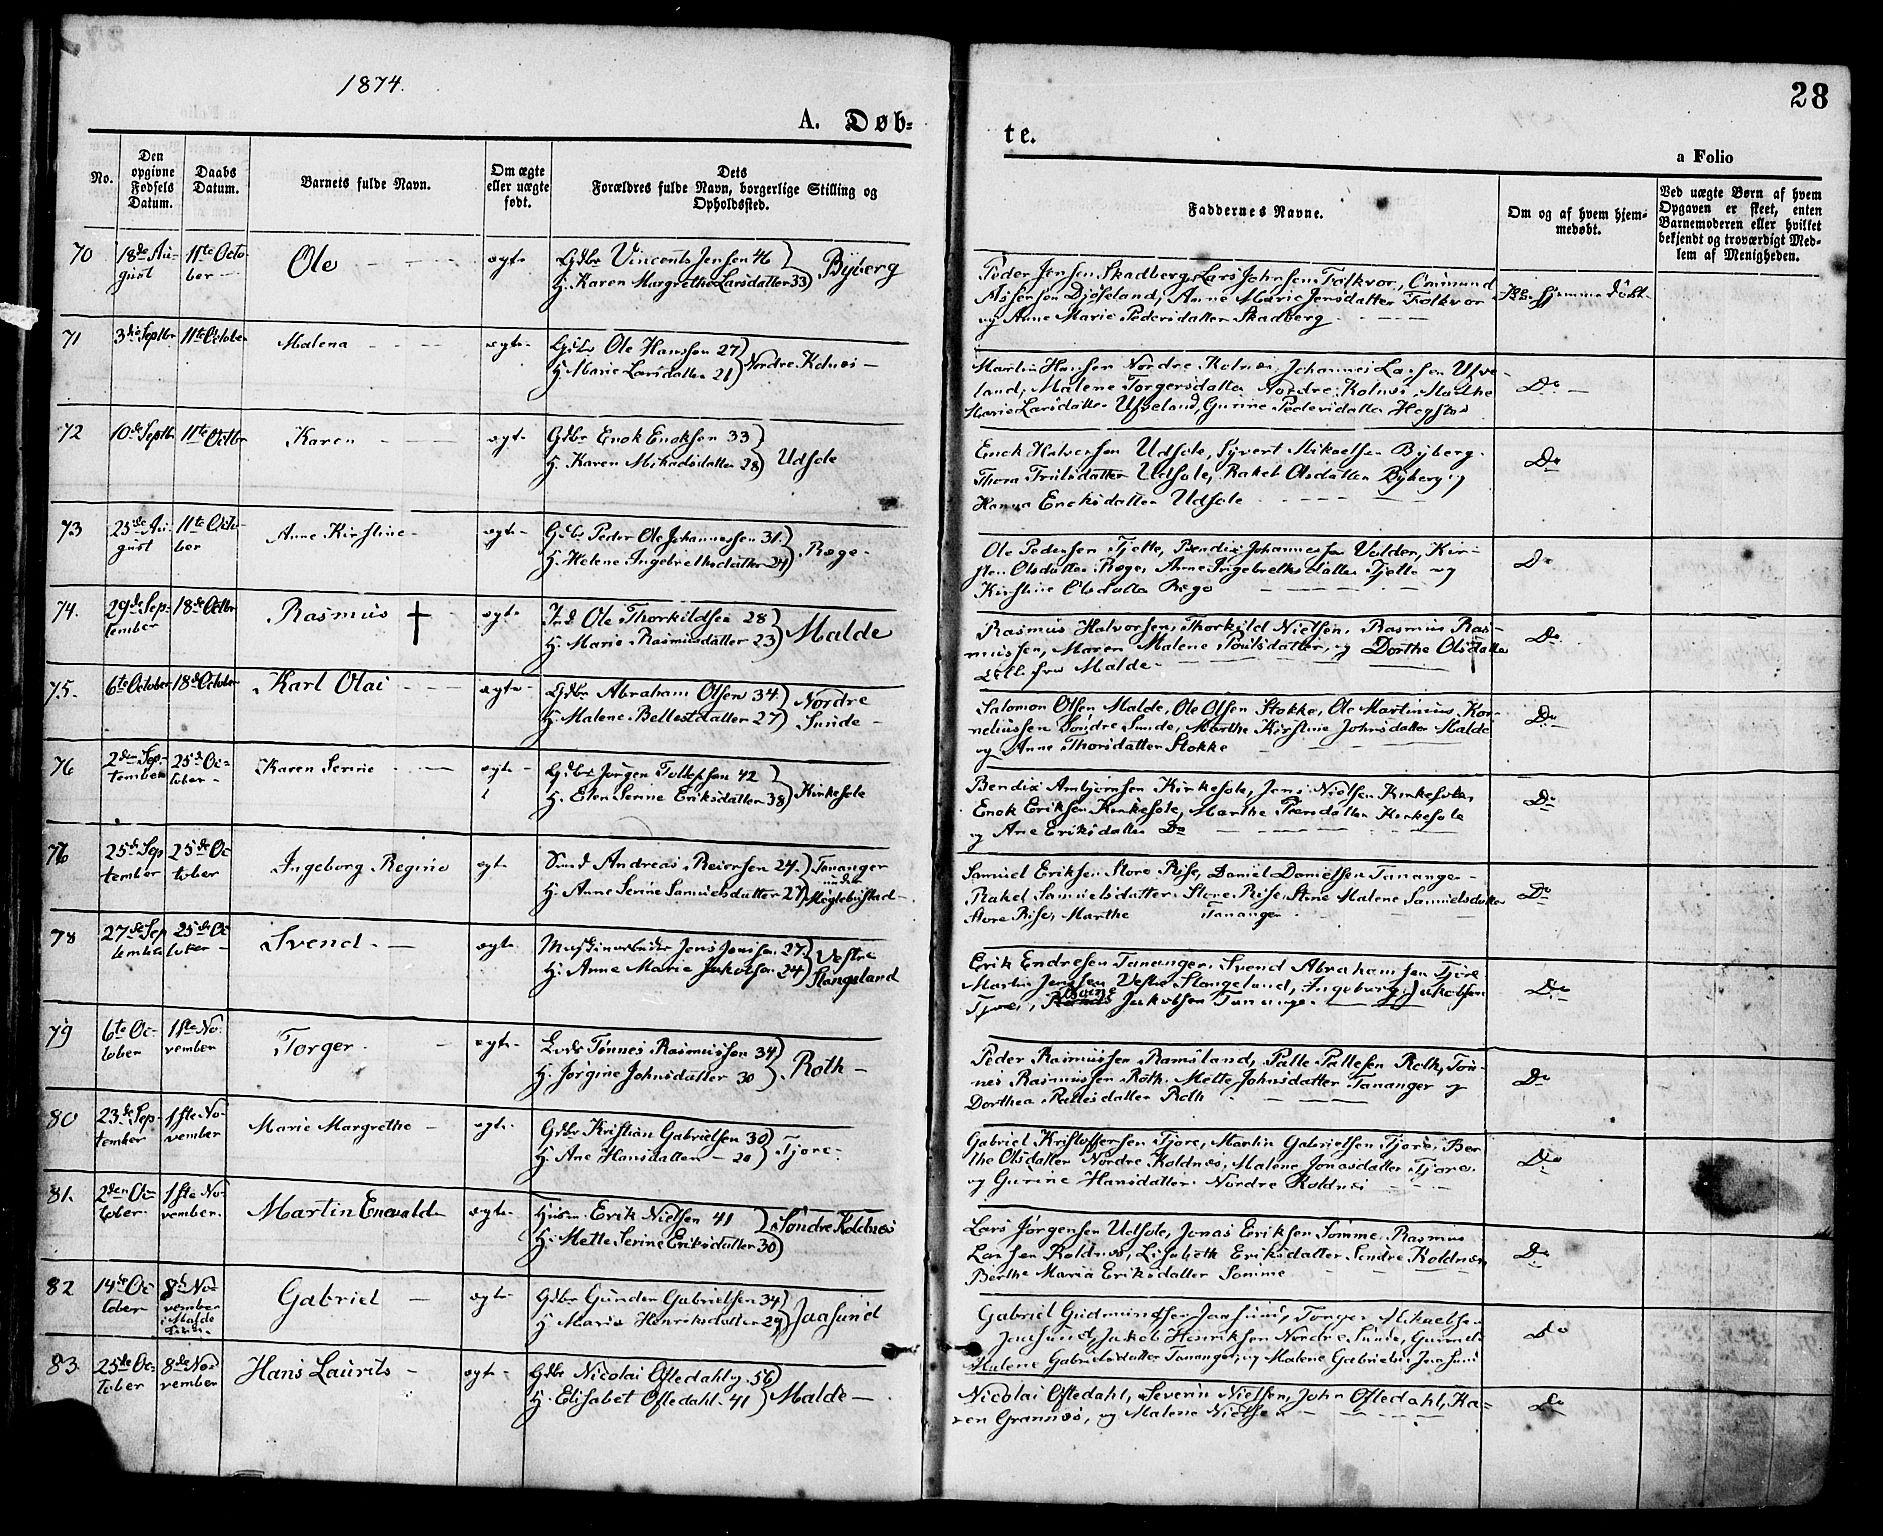 1874.
28
A. Døb-
te.
a Folio
No.
Den
opgivne
Fødsels
Datum.
Daabs
Datum.
Barnets fulde Navn.
Om ægte
eller uægte
født.
Dets
Forældres fulde Navn, borgerlige Stilling og
Opholdssted.
Faddernes Navne.
Om og af hvem hjem-
medøbt.
Ved uægte Børn af hvem
Opgaven er skeet, enten
Barnemoderen eller hvilket
bekjendt og troværdigt Med-
lem af Menigheden.
70 18de Au- 11te Octo- Ole ægte Gdbr Vincents Jensen 46 Byberg
gust ber H. Karen Margrethe Larsdatter 33
Peder Jensen Skadberg, Lars Johnsen Folkvor, Ommund
Assersen Djøseland, Anne Marie Jensdatter Folkvor
og Anne Marie Pedersdatter Skadberg
Hjemmedøbt
71 3die Septbr 11te October Malena ægte Gdbr Ole Hanssen 27 Nordre Kolnes
H. Marie Larsdatter 21
Martin Hansen Nordre Kolnes, Johannes Larsen Ufse-
land, Malene Torgersdatter Nordre Kolnes, Marthe
Marie Larsdatter Ufseland, Gurine Pedersdatter Hogstad
Do
72 10de Septbr 11te Octbr Karen ægte Gdbr Enok Enoksen 33 Udsole
H. Karen Mikaelsdatter 28
Enok Halvorsen Udsole, Syvert Mikaelsen Byberg
Thora Trulsdatter Udsole, Rakel Olsdatter Byberg og
Hanna Enoksdatter Udsole
Do
73 25de Au- 11te Octo- Anne Kirstine ægte Gdbr Peder Ole Johannessen 31 Røge
gust ber H. Helene Ingebrethsdatter 24
Ole Pedersen Tjette, Bendix Johannessen Valder, Kir-
sten Olsdatter Røge, Anne Ingebrethsdatter Tjette og
Kirstine Olsdatter Røge
Do
74. 29de Sep- 18de Octbr Rasmus † ægte Ind Ole Thorkildsen 28 Malde
tember H. Marie Rasmusdatter 23
Rasmus Halvorsen, Thorkild Nielsen, Rasmus Ras-
mussen, Maren Malene Poulsdatter, og Dorthe Olsdatter
alle fra Malde
Do
75. 6te October 18de October Karl Olai ægte Gdbr Abraham Olsen 34 Nordre
H. Malene Bellestdatter 27 Sunde
Salomon Olsen Malde, Ole Olsen Stokke, Ole Martinius Kor-
neliussen Søndre Sunde, Marthe Kirstine Johnsdatter Malde
og Anne Thorsdatter Stokke
Do
76 2den Sep- 25de Oc- Karen Serine ægte Gdbr Jørgen Tollefsen 42 Kirkesole
tember tober H. Elen Serine Eriksdatter 38
Bendix Ambjørnsen Kirkesole, Jens Nielsen Kirkesole,
Enok Eriksen Kirkesole, Marthe Pedersdatter Kirkesole
og Ane Eriksdatter Do
Do
76 25de Sep 25de Oc Ingeborg Regine ægte Smed Andreas Reiersen 24 Tananger
tember tober H. Anne Serine Samuelsdatter 27 under Meglebustad
Samuel Eriksen Store Risse, Daniel Danielsen Tananger
Rakel Samuelsdatter Store Risse, Stine Malene Samuelsdatter
Store Risse, Marthe Tananger
Do
78 27de Sep 25de Oc Svend ægte Maskinarbeider Jens Jenssen 27 Vestre
tember tober H. Anne Marie Jakobsen 24 Stangeland
Erik Endresen Tananger, Svend Abrahamsen Tjore
Martin Jenssen Vestre Stangeland, Ingeborg Jakobsen
Tjore, Jakobsen Tananger
Do
79 6te Oc- 1ste No- Torger ægte Gdbr Tønnes Rasmussen 34 Roth
tober vember H. Jørgine Johnsdatter 30
Peder Rasmussen Ramsland, Palle Pallesen Roth, Tøn-
nes Rasmussen Roth, Mette Johnsdatter Tananger og
Dorthea Pallesdatter Roth
Do
80 23de Sep- 1ste No- Marie Margrethe ægte Gdbr Kristian Gabrielsen 30 Tjore
tember vember H. Ane Hansdatter 20
Gabriel Kristoffersen Tjore, Martin Gabrielsen Tjore, Ber-
the Olsdatter Nordre Koldnes, Malene Jonasdatter Tjore,
og Gurine Hansdatter Nordre Koldnes
Do
81. 2den Oc- 1ste No- Martin Enevald ægte Husm. Erik Nielsen 41 Søndre Koldnes
tober vember H. Mette Serine Eriksdatter 30
Lars Jørgensen Udsole, Jonas Eriksen Sømme, Rasmus
Larsen Koldnes, Lisabeth Eriksdatter Søndre Koldnes,
Berthe Maria Eriksdatter Sømme
Do
82 14de Oc- 8de No- Gabriel ægte Gdbr Gunder Gabrielsen 34 Jaasund
tober vember i Malde Kirke H. Marie Henriksdatter 29
Gabriel Gudmundsen Jaasund, Torger Mikaelsen
Jaasund, Jakob Henriksen Nordre Sunde, Gurine
Malene Gabrielsdatter Tananger, og Malene Gabrielsd. Jaasund
Do
83 25de Oc- 8de No- Hans Laurits ægte Gdbr Nicolai Oftedahl 56 Malde
tober vember H. Elisabet Oftedahl 41
Nicolai Oftedahl, Severin Nielsen, John Oftedahl, Ka-
ren Grannes, og Malene Nielsen
Do